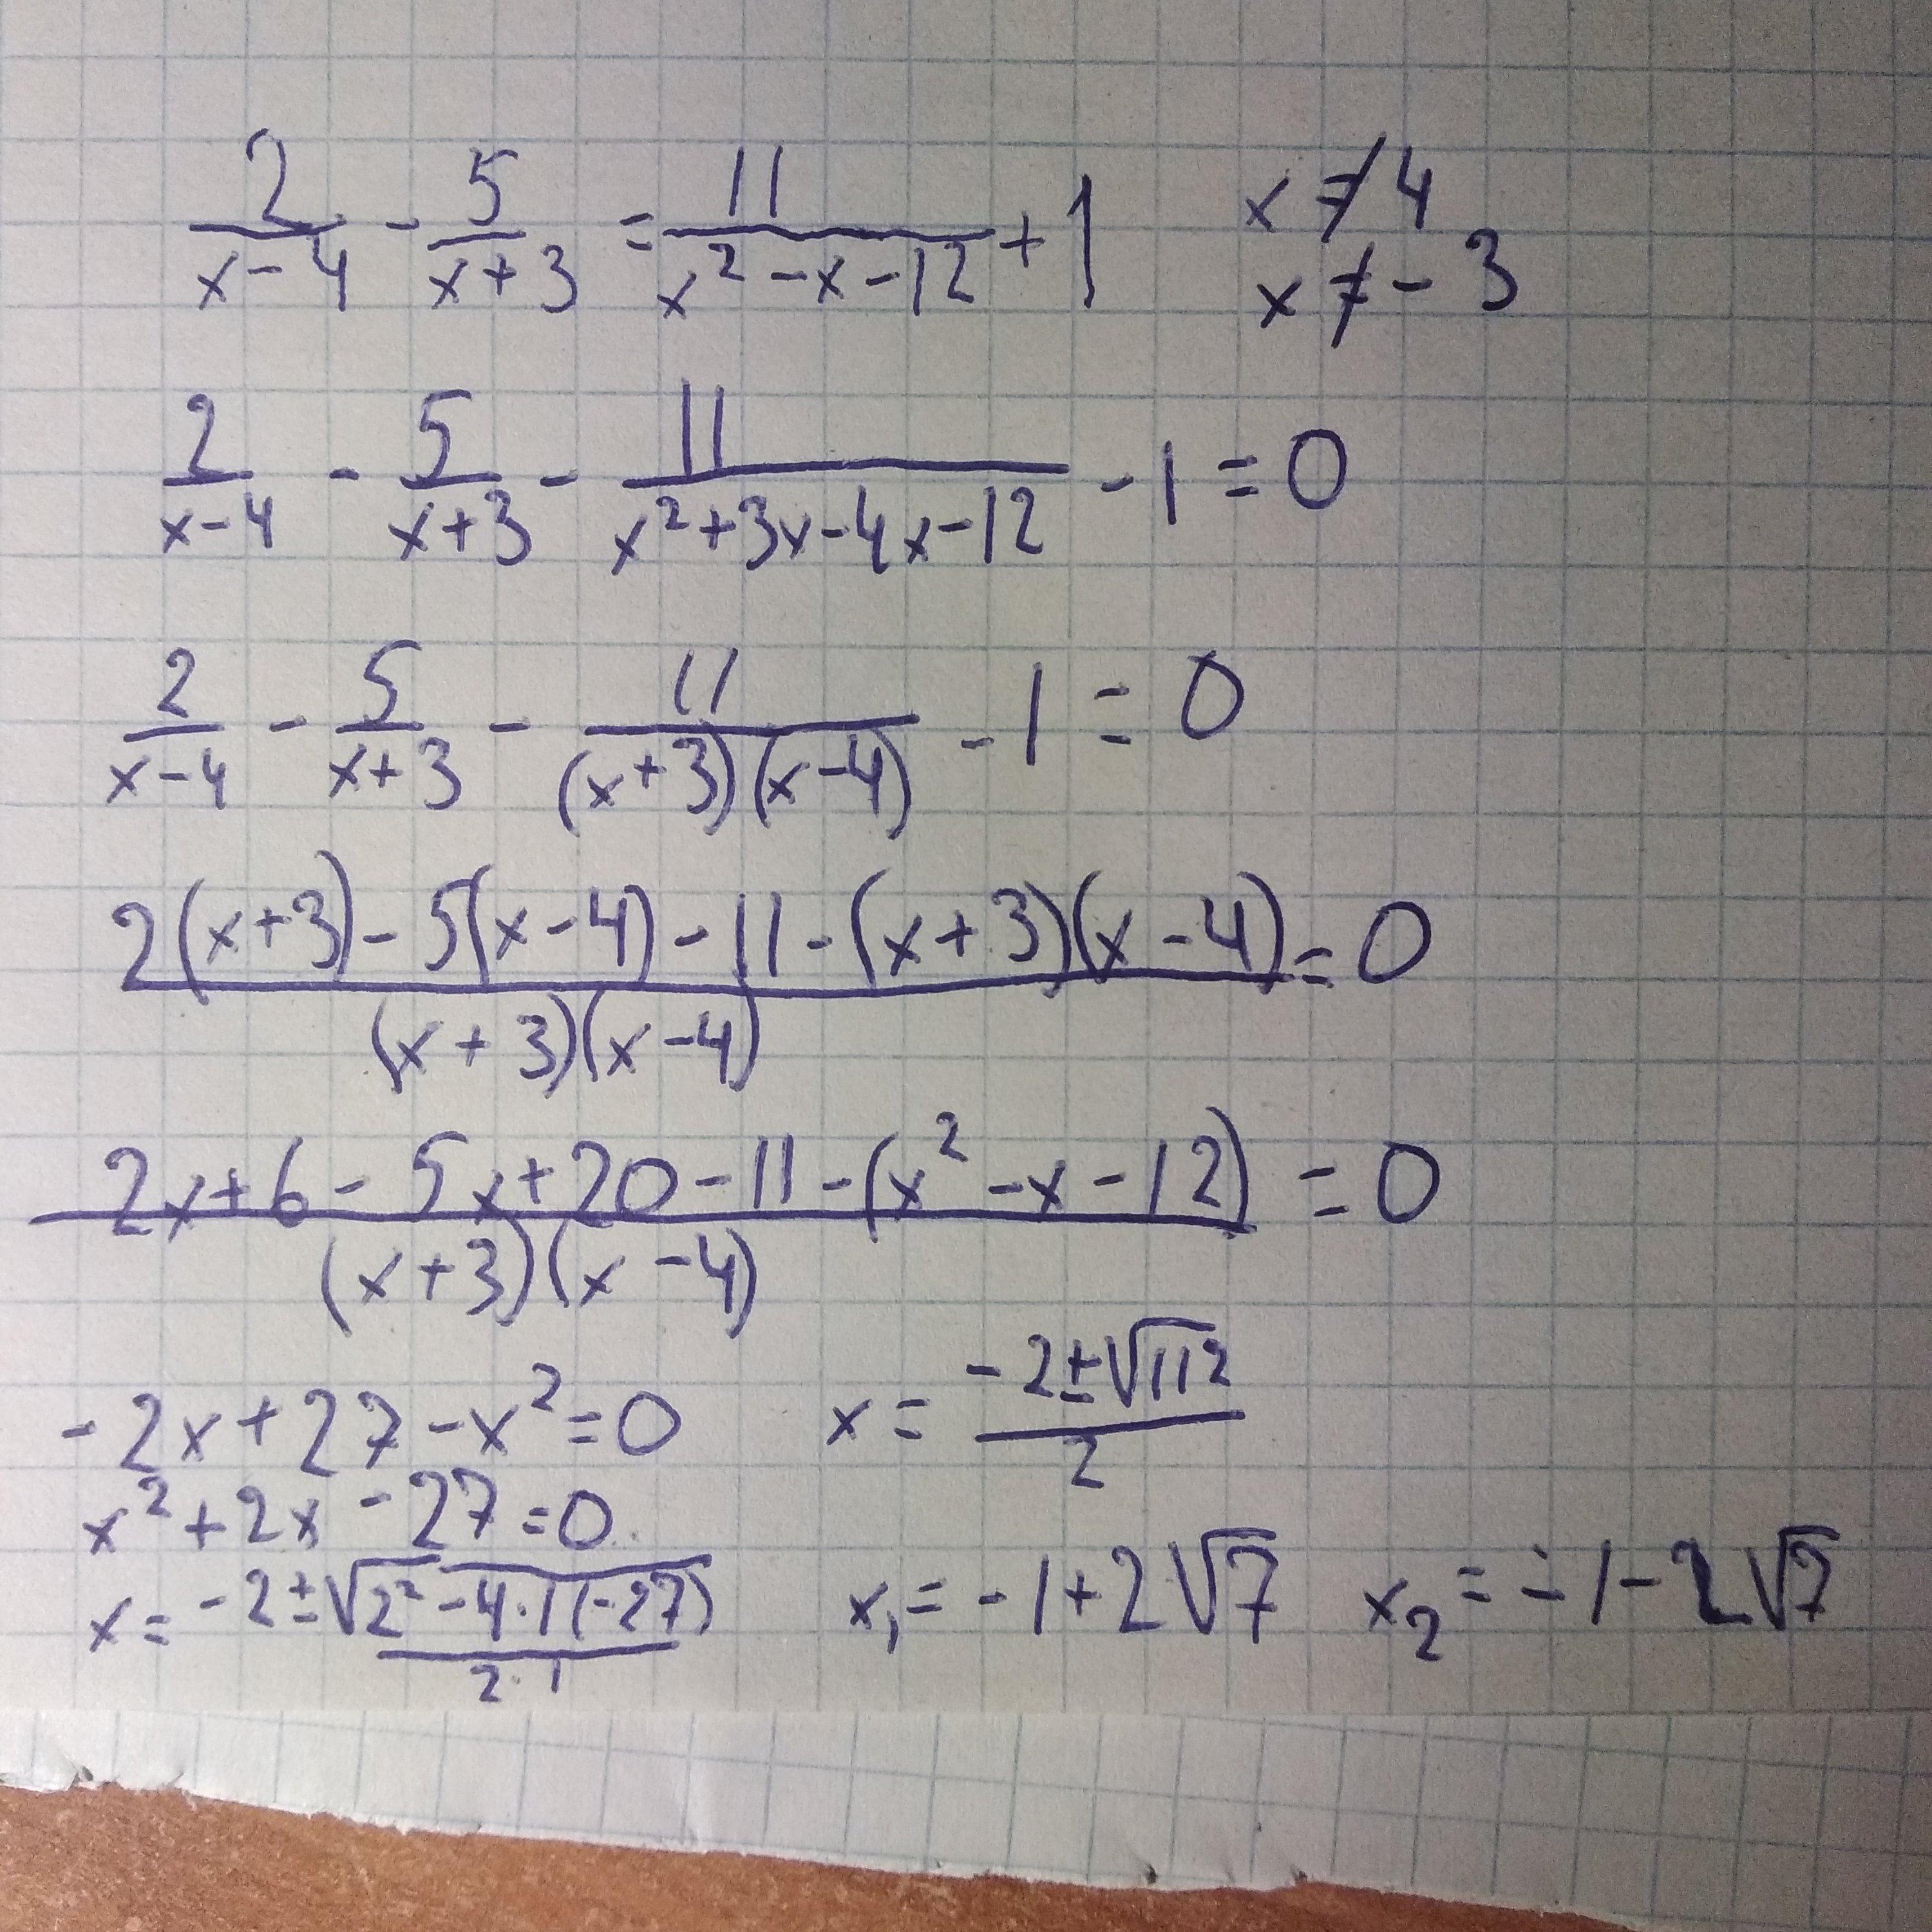 2/(x-4) - 5/(x+3) = 11/(x² - x - 12) + 1   x ≠ 4
x ≠ -3
2/(x-4) - 5/(x+3) - 11/(x²+3x-4x-12) - 1 = 0
2/(x-4) - 5/(x+3) - 11/((x+3)(x-4)) - 1 = 0
(2(x+3) - 5(x-4) - 11 - (x+3)(x-4))/((x+3)(x-4)) = 0
(2x+6 - 5x+20 - 11 - (x² - x - 12))/((x+3)(x-4)) = 0
-2x + 27 - x² = 0   x = (-2±√112)/2
x² + 2x - 27 = 0
x = (-2±√(2² - 4·1(-27)))/(2·1)   x₁ = -1+2√7   x₂ = -1-2√7